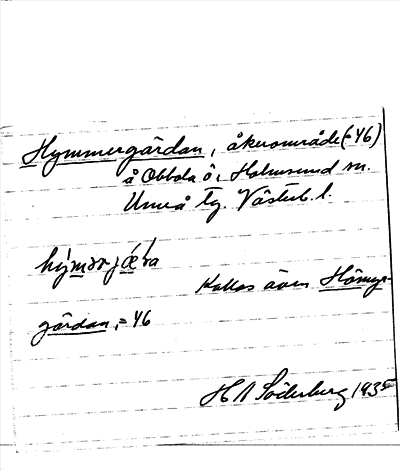 Hymmergärdan, åkerområde (=46)
å Obbola ö i Holmsund sn.
Umeå tg. Västerb. l.
hýmərjæ̀ra
Kallas även Hömyr-
gärdan, = 46
H A Söderberg 1935